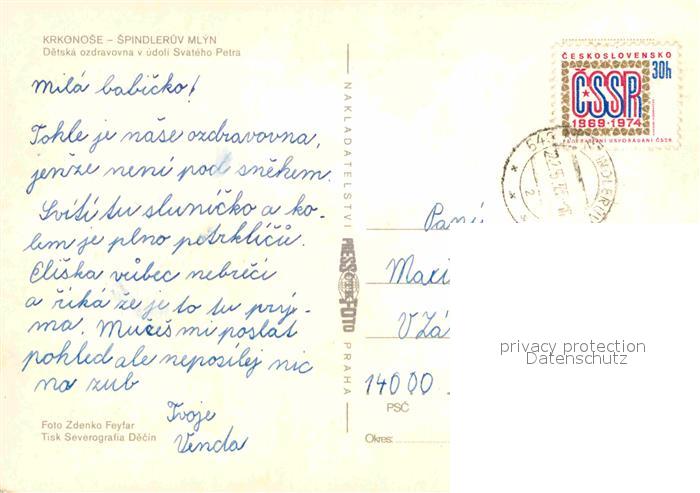 KRKONOŠE – ŠPINDLERŮV MLÝN
Dětská ozdravovna v údolí Svatého Petra
Milá babičko!
Tohle je naše ozdravovna,
jenže není pod sněhem.
Svítí tu sluníčko a ko-
lem je plno petrklíčů.
Eliška vůbec nebrečí
a říká že je to tu prý-
ma. Mužeš mi poslat
pohled ale neposílej nic
na zub
Tvoje
Venda
Foto Zdenko Feyfar
Tisk Severografia Děčín
NAKLADATELSTVÍ
PRESSFOTO
PRAHA
ČESKOSLOVENSKO
30h
ČSSR
1969-1974
FEDERATIVNÍ USPOŘÁDÁNÍ ČSSR
Paní
Mari
V Zá
14000
PSČ
Okres:
privacy protection
Datenschutz